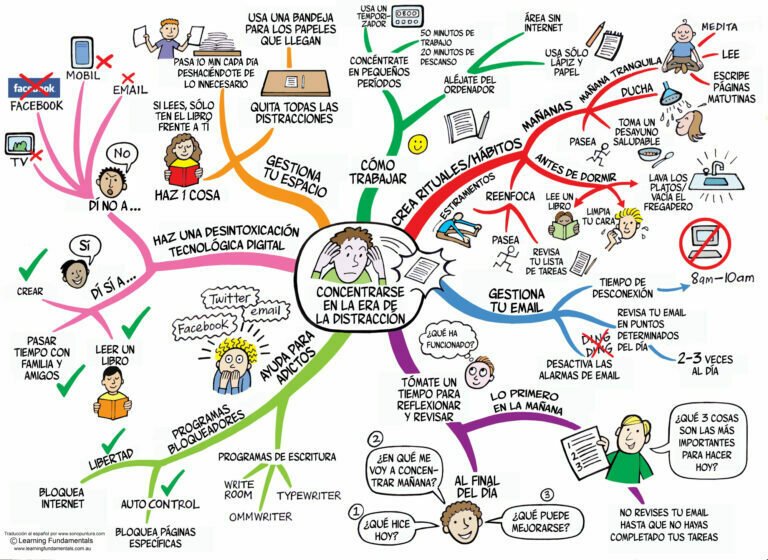 CONCENTRARSE
EN LA ERA DE
LA DISTRACCIÓN
CÓMO
TRABAJAR
CONCÉNTRATE
EN PEQUEÑOS
PERÍODOS
USA UN
TEMPORI-
ZADOR
50 MINUTOS DE
TRABAJO
20 MINUTOS DE
DESCANSO
ALÉJATE DEL
ORDENADOR
ÁREA SIN
INTERNET
USA SÓLO
LÁPIZ Y
PAPEL
CREA RITUALES/HÁBITOS
MAÑANAS
MAÑANA TRANQUILA
MEDITA
LEE
ESCRIBE
PÁGINAS
MATUTINAS
DUCHA
TOMA UN
DESAYUNO
SALUDABLE
PASEA
ANTES DE DORMIR
LEE UN
LIBRO
LIMPIA
TU CARA
LAVA LOS
PLATOS/
VACÍA EL
FREGADERO
REENFOCA
ESTIRAMIENTOS
PASEA
REVISA
TU LISTA
DE TAREAS
GESTIONA
TU EMAIL
TIEMPO DE
DESCONEXIÓN
8am-10am
REVISA TU EMAIL
EN PUNTOS
DETERMINADOS
DEL DÍA
2-3 VECES
AL DÍA
DING
DING
DESACTIVA LAS
ALARMAS DE EMAIL
TÓMATE UN
TIEMPO PARA
REFLEXIONAR
Y REVISAR
¿QUÉ HA
FUNCIONADO?
LO PRIMERO
EN LA MAÑANA
1
2
3
¿QUÉ 3 COSAS
SON LAS MÁS
IMPORTANTES
PARA HACER
HOY?
NO REVISES TU EMAIL
HASTA QUE NO HAYAS
COMPLETADO TUS TAREAS
AL FINAL
DEL DÍA
1
¿QUÉ HICE
HOY?
2
¿EN QUÉ ME
VOY A CONCEN-
TRAR MAÑANA?
3
¿QUÉ PUEDE
MEJORARSE?
AYUDA PARA
ADICTOS
Twitter
email
Facebook
PROGRAMAS DE ESCRITURA
WRITE
ROOM
OMMWRITER
TYPEWRITER
PROGRAMAS
BLOQUEADORES
LIBERTAD
BLOQUEA
INTERNET
AUTO CONTROL
BLOQUEA PÁGINAS
ESPECÍFICAS
HAZ UNA DESINTOXICACIÓN
TECNOLÓGICA DIGITAL
DÍ SÍ A...
Sí
CREAR
PASAR
TIEMPO CON
FAMILIA Y
AMIGOS
LEER UN
LIBRO
DÍ NO A...
No
TV
facebook
FACEBOOK
MOBIL
EMAIL
GESTIONA
TU ESPACIO
HAZ 1 COSA
SI LEES, SÓLO
TEN EL LIBRO
FRENTE A TÍ
PASA 10 MIN CADA DÍA
DESHACIÉNDOTE DE
LO INNECESARIO
USA UNA BANDEJA
PARA LOS PAPELES
QUE LLEGAN
QUITA TODAS LAS
DISTRACCIONES
Traducción al español por www.sonopuntura.com
© Learning Fundamentals
www.learningfundamentals.com.au